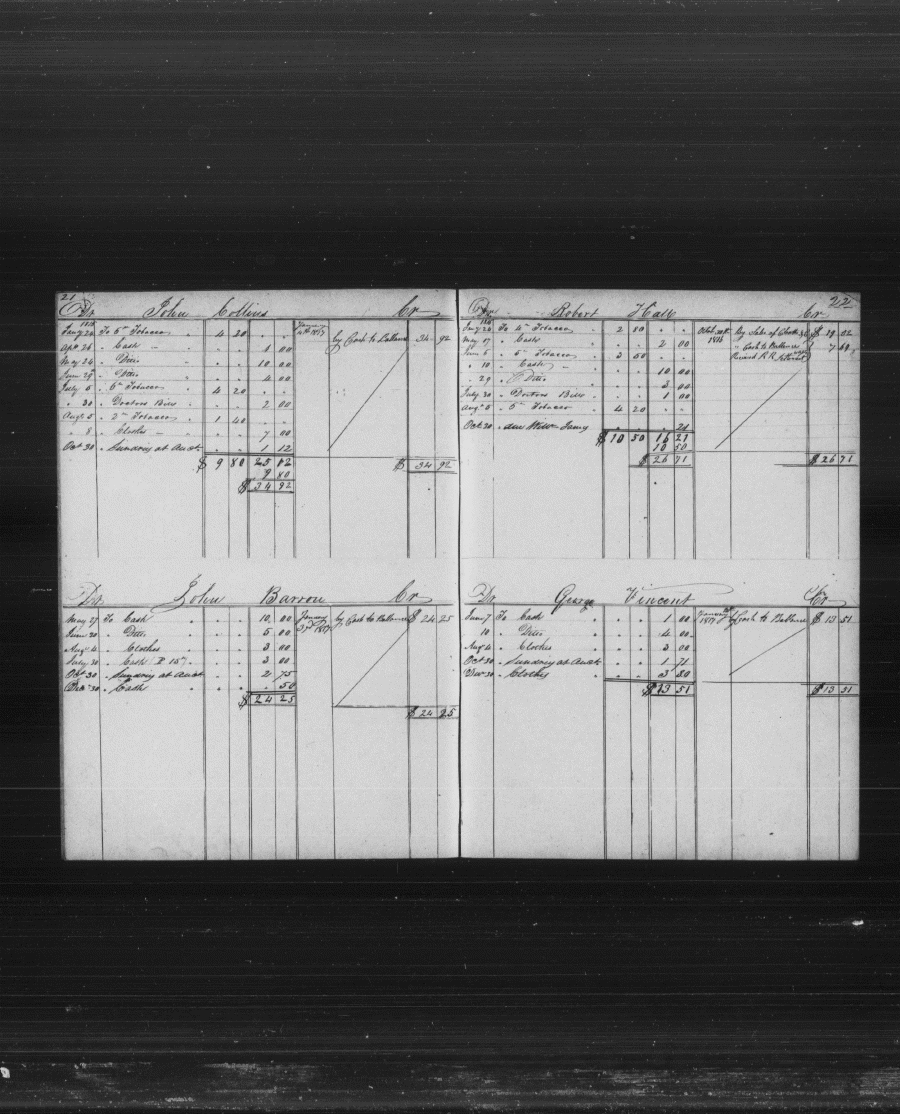 21
Dr. John Collins Cr
1816
Jany 24 To 6 lb Tobacco . 4 20 . .
Apl 26 . Cash . . . 1 00
May 24 . Ditto . . 10 00
June 29 . Ditto . . 4 00
July 5 . 6 lb Tobacco . 4 20 . .
" 30 . Doctors Bill . . . 2 00
Augt 5 . 2 lb Tobacco . 1 40 . .
" 8 . Clothes . . . 7 00
Oct 30 . Sundry at Auct . . 1 12
$ 9 80 25 12
9 80
$ 34 92
January 4th 1817 by Cash to Ballance 34 92
$ 34 92
Dr. John Barron Cr
May 27 To Cash . . 10 00
June 20 . Ditto . . 5 00
Augt 4 . Clothes . . 3 00
July 30 . Cash . . 3 00
Oct 30 . Sundry at Auct . . 2 75
Decr 30 . Cash . . . 50
$ 24 25
January 3rd 1817 by Cash to Ballance $ 24 25
$ 24 25
22
Dr. Robert Hall Cr
1816
Jany 24 To 4 lb Tobacco . 2 80 . .
May 17 . Cash . . 2 00
June 5 . 5 lb Tobacco . 3 50 . .
" 10 . Cash . . 10 00
" 29 . Ditto . . 3 00
July 30 . Doctors Bill . . 1 00
Augt 5 . 6 lb Tobacco . 4 20 . .
Oct 20 . . . . 21
$ 10 50 16 21
10 50
$ 26 71
1816 By Sale of Clothes $ 19 22
" Cash to Ballance 7 49
$ 26 71
Dr. George Vincent Cr
June 7 To Cash . . 1 00
10 . Ditto . . 4 00
Augt 4 . Clothes . . 3 00
Oct 30 . Sundry at Auct . . 1 71
Decr 30 . Clothes . . 3 80
$ 13 51
January 1817 by Cash to Ballance $ 13 51
$ 13 51